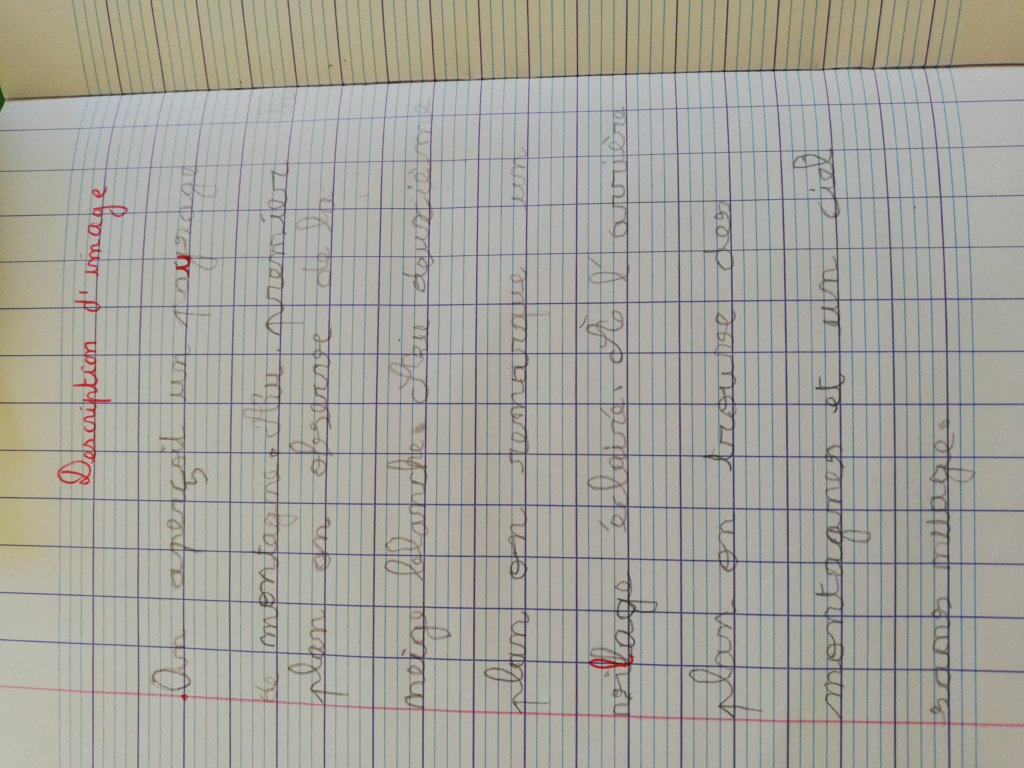 Description d'image
On aperçoit un paysage
de montagne. Au premier
plan on observe de la
neige blanche. Au deuxième
plan on remarque un
village éclairé. À l'arrière
plan on trouve des
montagnes et un ciel
sans nuage.